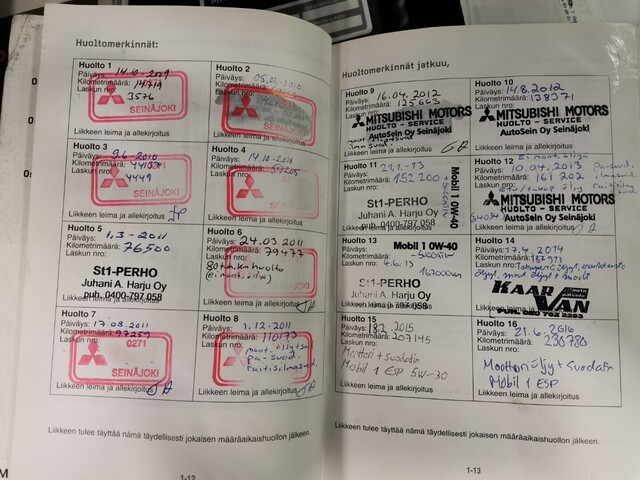 Huoltomerkinnät:
Huolto 1
Päiväys: 14.10-2009
Kilometrimäärä: 14719
Laskun nro: 3576
SEINÄJOKI
Liikkeen leima ja allekirjoitus
Huolto 2
Päiväys: 05.02-2010
Kilometrimäärä:
Laskun nro:
SEINÄJOKI
Liikkeen leima ja allekirjoitus
Huolto 3
Päiväys: 9.6-2010
Kilometrimäärä:
Laskun nro: 4449
SEINÄJOKI
Liikkeen leima ja allekirjoitus
Huolto 4
Päiväys: 14.10-2010
Kilometrimäärä: 59205
Laskun nro:
SEINÄJOKI
Liikkeen leima ja allekirjoitus
Huolto 5
Päiväys: 1.3-2011
Kilometrimäärä: 76500
Laskun nro:
St1-PERHO
Juhani A. Harju Oy
puh. 0400-797 058
Huolto 6
Päiväys: 24.03.2011
Kilometrimäärä: 79477
Laskun nro:
80tkm huolto
Liikkeen leima ja allekirjoitus
Huolto 7
Päiväys: 17.08.2011
Kilometrimäärä: 97259
Laskun nro:
0271
SEINÄJOKI
Liikkeen leima ja allekirjoitus
Huolto 8
Päiväys: 1.12-2011
Kilometrimäärä: 110173
Laskun nro:
Liikkeen leima ja allekirjoitus
Liikkeen tulee täyttää nämä täydellisesti jokaisen määräaikaishuollon jälkeen.
1-12
Huoltomerkinnät jatkuu,
Huolto 9
Päiväys: 16.04.2012
Kilometrimäärä: 125663
MITSUBISHI MOTORS
HUOLTO - SERVICE
AutoSein Oy Seinäjoki
Liikkeen leima ja allekirjoitus
Huolto 10
Päiväys: 14.8.2012
Kilometrimäärä: 138371
Laskun nro:
MITSUBISHI MOTORS
HUOLTO - SERVICE
AutoSein Oy Seinäjoki
Liikkeen leima ja allekirjoitus
Huolto 11
Päiväys: 21.1-13
Kilometrimäärä: 152200
Laskun nro:
Mobil 1 0W-40
St1-PERHO
Juhani A. Harju Oy
puh. 0400-797 058
Huolto 12
Päiväys: 10.04.2013
Kilometrimäärä: 161 202
Laskun nro:
MITSUBISHI MOTORS
HUOLTO - SERVICE
AutoSein Oy Seinäjoki
Liikkeen leima ja allekirjoitus
Huolto 13
Mobil 1 0W-40
Päiväys:
Kilometrimäärä:
Laskun nro: 4.6.13
167000km
St1-PERHO
Juhani A. Harju Oy
puh. 0400-797 058
Huolto 14
Päiväys: 17.4.2014
Kilometrimäärä: 187973
Laskun nro:
KAAR
VAN
Huolto 15
Päiväys: 18.2.2015
Kilometrimäärä: 207145
Laskun nro:
Moottori + suodatin
Mobil 1 ESP 5W-30
Liikkeen leima ja allekirjoitus
Huolto 16
Päiväys: 21.6.2016
Kilometrimäärä: 230780
Laskun nro:
Moottoriöljy + suodatin
Mobil 1 ESP
Liikkeen leima ja allekirjoitus
Liikkeen tulee täyttää nämä täydellisesti jokaisen määräaikaishuollon jälkeen.
1-13